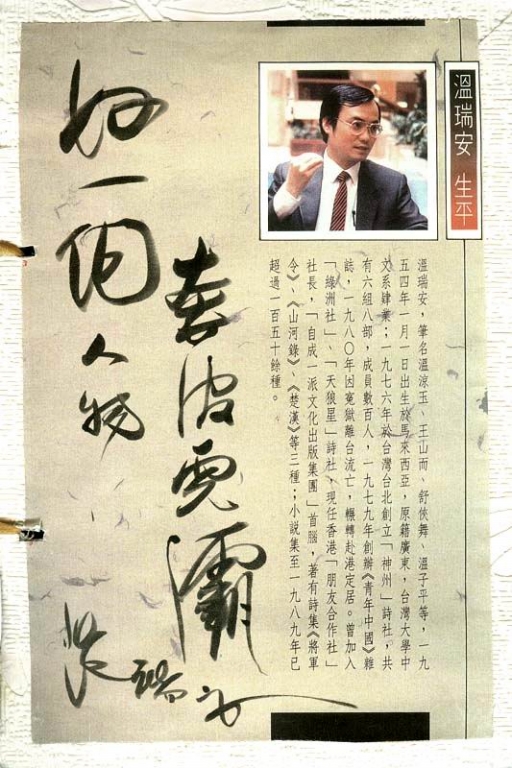 溫瑞安 生平
溫瑞安，筆名溫涼玉、王山而、舒俠舞、溫子平等，一九
五四年一月一日出生於馬來西亞，原籍廣東，台灣大學中
文系肄業；一九七六年於台灣台北創立「神州」詩社，共
有六組八部，成員數百人，一九七九年創辦《青年中國》雜
誌，一九八〇年因冤獄離台流亡，輾轉赴港定居。曾加入
「綠洲社」、「天狼星」詩社，現任香港「朋友合作社」
社長，「自成一派文化出版集團」首腦，著有詩集《將軍
令》、《山河錄》、《楚漢》等三種；小說集至一九八九年已
超過一百五十餘種。
好一個人物
瑞安